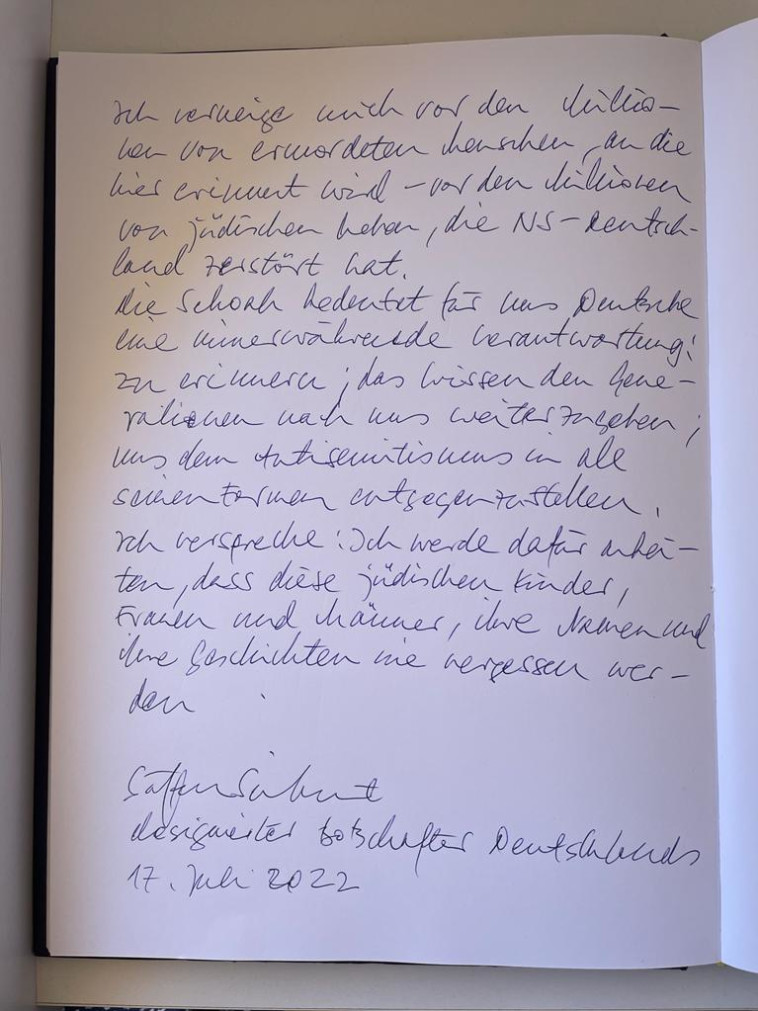 Ich verneige mich vor den Millio-
nen von ermordeten Menschen, an die
hier erinnert wird – vor den Millionen
von jüdischen Leben, die NS-Deutsch-
land zerstört hat.
Die Schoah bedeutet für uns Deutsche
eine immerwährende Verantwortung:
zu erinnern; das Wissen den Gene-
rationen nach uns weiterzugeben;
uns dem Antisemitismus in all
seinen Formen entgegenzustellen.
Ich verspreche: Ich werde dafür arbei-
ten, dass diese jüdischen Kinder,
Frauen und Männer, ihre Namen und
ihre Geschichten nie vergessen wer-
den
Steffen Seibert
designierter Botschafter Deutschlands
17. Juli 2022